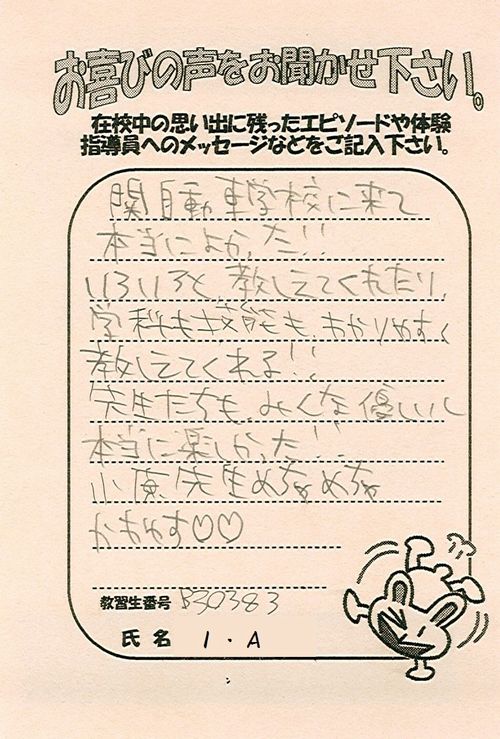 お喜びの声をお聞かせ下さい。
在校中の思い出に残ったエピソードや体験
指導員へのメッセージなどをご記入下さい。
関自動車学校に来て
本当によかった!!
いろいろと、教しえてくれたり、
学科も技能も、わかりやすく
教しえてくれる!!
先生たちも、みんな優しいし
本当に楽しかった!!
小原先生めちゃめちゃ
教習生番号 B30383
氏名 I・A